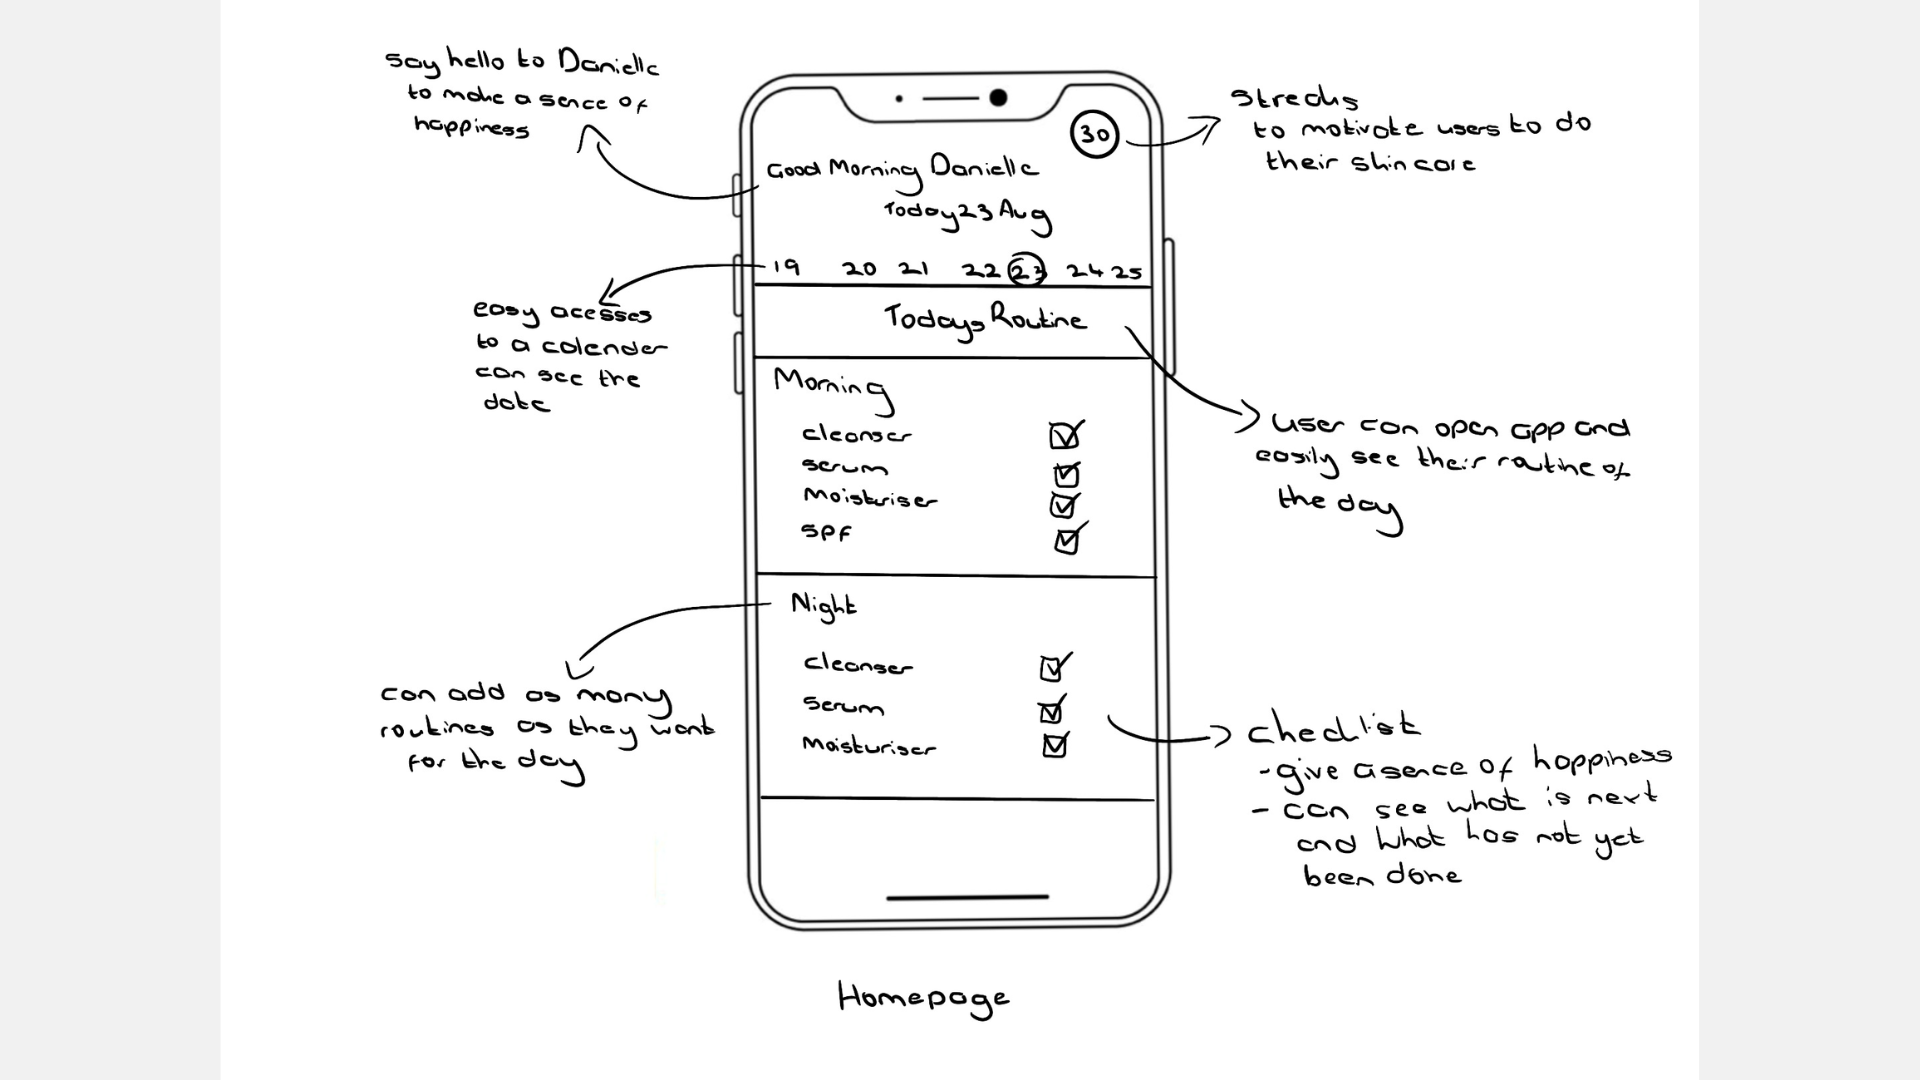 say hello to Danielle
to make a sence of
happiness
30
streaks
to motivate users to do
their skincare
Good Morning Danielle
Today 23 Aug
19 20 21 22 23 24 25
easy acesses
to a calender
can see the
date
Todays Routine
user can open app and
easily see their routine of
the day
Morning
cleanser
serum
Moisturiser
SPF
Night
cleanser
serum
Moisturiser
can add as many
routines as they want
for the day
checklist
- give a sence of happiness
- can see what is next
and what has not yet
been done
Homepage